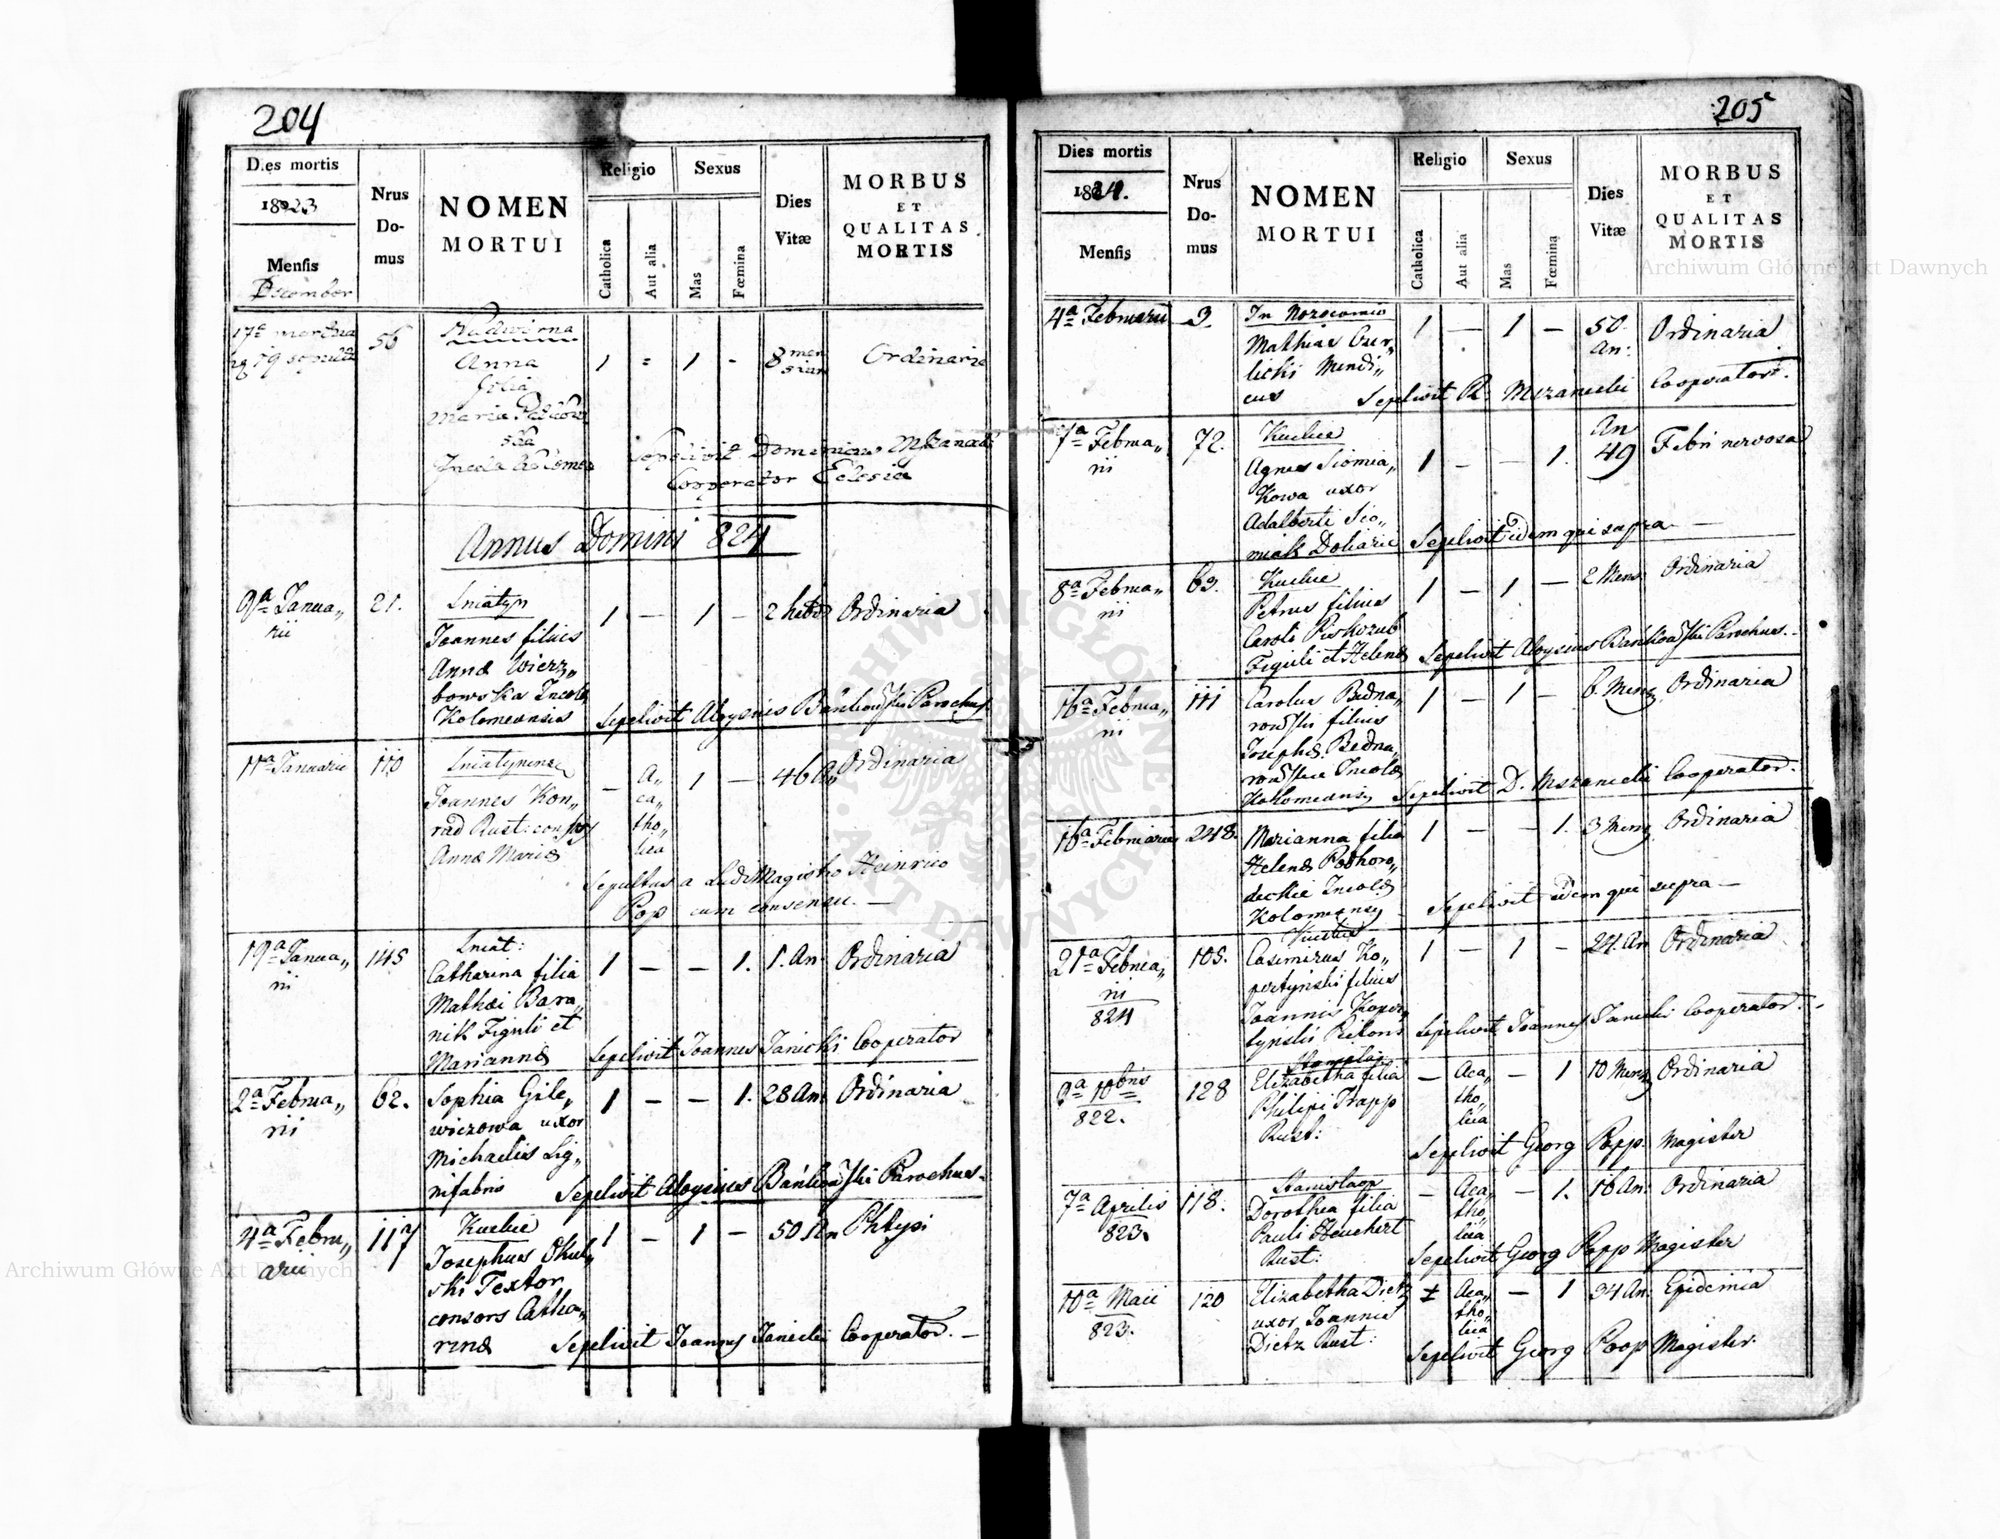 204
Dies mortis
1823
Mensis
December
Nrus
Do-
mus
NOMEN
MORTUI
Religio
Catholica
Aut alia
Sexus
Mas
Fœmina
Dies
Vitæ
MORBUS
ET
QUALITAS
MORTIS
56
Anna
1 = 1 -
8 men
Ordinaria
Sepelivit Dominicus
Cooperator
Annus Domini 824
9ª Janua„
rii
21.
Sniatyn
Joannes filius
Annæ Wierz„
bowska Incolæ
Kolomeansis
1 — 1 —
2 hebd
Ordinaria
Sepelivit Aloysius Parochus
11ª Januarii
110
Joannes Kon„
rad Rust: consors
Annæ Mariæ
— A„
ca„
tho„
lica
1 —
46 An
Ordinaria
Sepultus a Ludi Magistro Heinrico
Pop cum consensu. —
19ª Janua„
rii
145
Sniat:
Catharina filia
Mathæi Bara„
nik Figuli et
Mariannæ
1 — — 1.
1. An
Ordinaria
Sepelivit Joannes Janicki Cooperator
2ª Februa„
rii
62.
Sophia Gile„
wiczowa uxor
Michaelis Lig„
nifabris
1 — — 1.
28 An
Ordinaria
Sepelivit Aloysius Parochus.
4ª Febru„
arii
117
Kuchie
Josephus Okul„
ski Textor
consors Catha„
rinæ
1 — 1 —
50 An
Phtysi
Sepelivit Joannes Janicki Cooperator. —
205
Dies mortis
1824.
Mensis
Nrus
Do-
mus
NOMEN
MORTUI
Religio
Catholica
Aut alia
Sexus
Mas
Fœmina
Dies
Vitæ
MORBUS
ET
QUALITAS
MORTIS
4ª Februarii
3.
In Nozocomio
Mathias
licki Mendi„
cus
1 — 1 —
50.
An:
Ordinaria
Sepelivit R: Mszanecki Cooperator.
7ª Februa„
rii
72.
Kuchie
Agnes Siomia„
kowa uxor
Adalberti Sio„
miak Doliarii
1 — — 1.
An
49
Febri nervosa
Sepelivit idem qui supra —
8ª Februa„
rii
63.
Kuchie
Petrus filius
Caroli Piskozub
Figuli et Helenæ
1 — 1 —
2 Mens
Ordinaria
Sepelivit Aloysius Parochus.
16ª Februa„
rii
111
Carolus Bedna„
rowski filius
Josephæ Bedna„
rowskie Incolæ
Kolomeansis
1 — 1 —
6. Mens
Ordinaria
Sepelivit D. Mszanecki Cooperator.
16ª Februarii
248.
Marianna filia
Helenæ Podhoro„
deckie Incolæ
1 — — 1.
3 Mens
Ordinaria
Sepelivit idem qui supra —
21ª Februa„
rii
824
105.
Kuchie
Casimirus Ko„
pertynski filius
Joannis Koper„
tynski
1 — 1 —
24. An
Ordinaria
Sepelivit Joannes Janicki Cooperator.
9ª 10bris
822.
128
Elizabetha filia
Philipi Trapp
Rust:
— Aca„
tho„
lica
— 1
10 Mens
Ordinaria
Sepelivit Georg Popp Magister
7ª Aprilis
823.
118.
Stanislaop
Dorothea filia
Pauli Heuchert
Rust:
— Aca„
tho„
lica
— 1.
16 An.
Ordinaria
Sepelivit Georg Popp Magister
10ª Maii
823.
120
Elizabetha Dietz
uxor Joannis
Dietz Rust:
Aca„
tho„
lica
— 1
34 An.
Epidemia
Sepelivit Georg Popp Magister.
Archiwum Główne Akt Dawnych
Archiwum Główne Akt Dawnych
ARCHIWUM GŁÓWNE AKT DAWNYCH